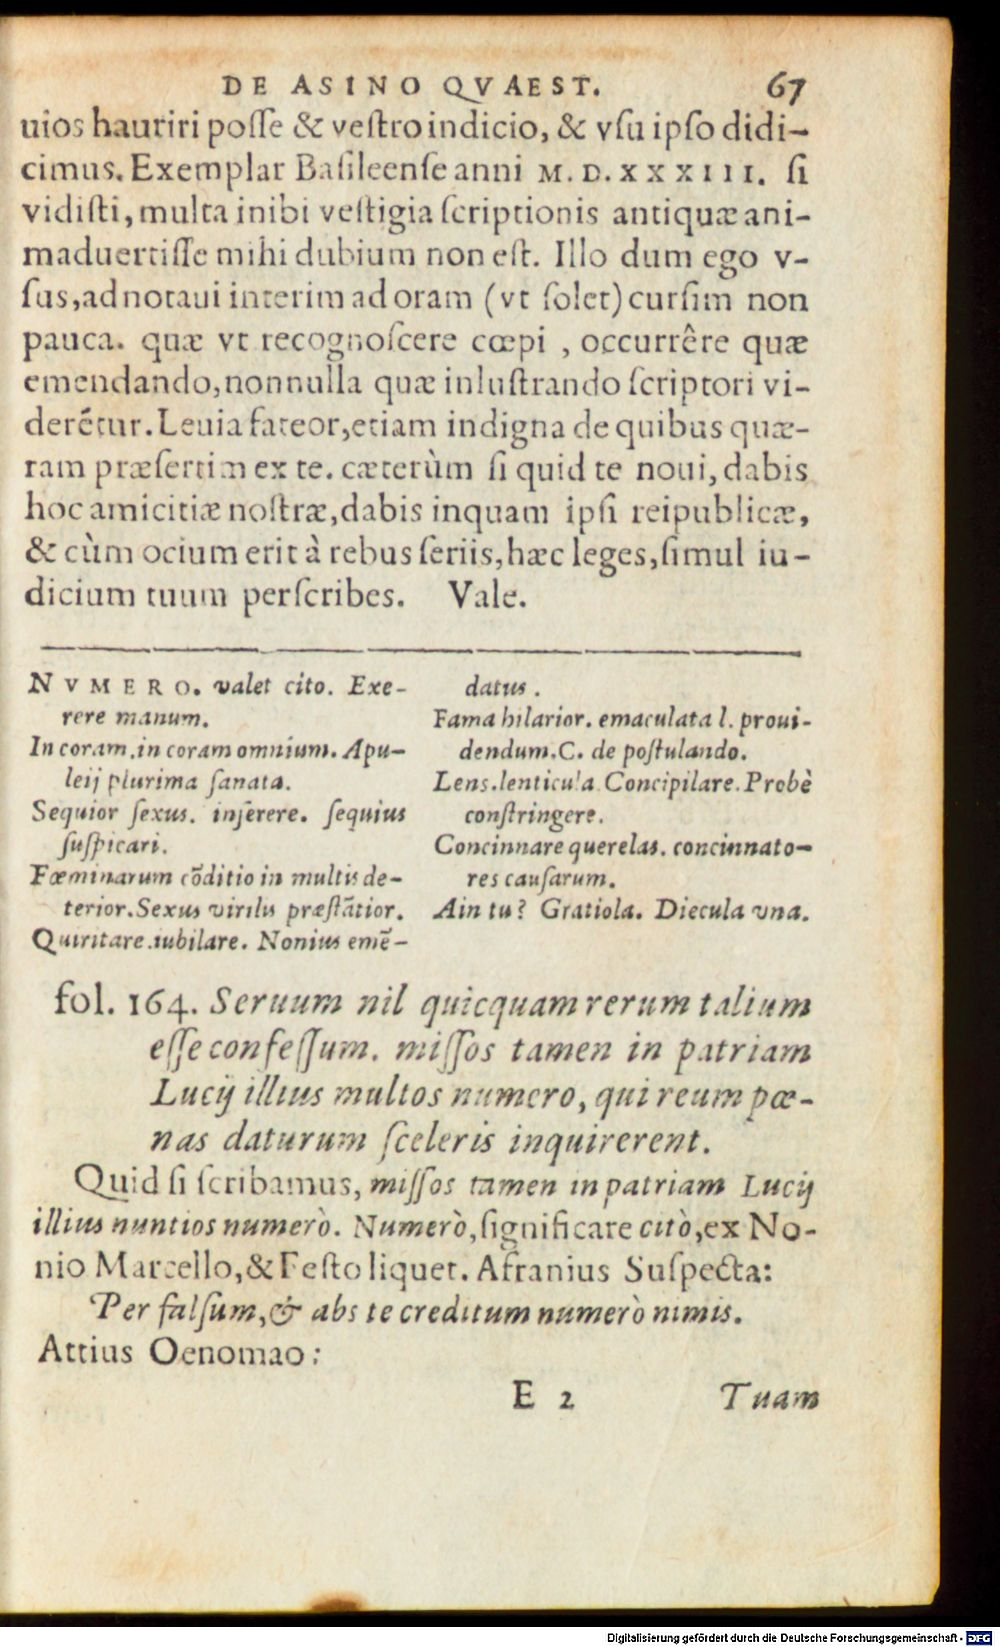 DE ASINO QVAEST. 67
uios hauriri posse & vestro indicio, & vsu ipso didi-
cimus. Exemplar Basileense anni M. D. XXXIII. si
vidisti, multa inibi vestigia scriptionis antiquæ ani-
maduertisse mihi dubium non est. Illo dum ego v-
sus, adnotaui interim ad oram (vt solet) cursim non
pauca. quæ vt recognoscere cœpi, occurrêre quæ
emendando, nonnulla quæ inlustrando scriptori vi-
derẽtur. Leuia fateor, etiam indigna de quibus quæ-
ram præsertim ex te. cæterùm si quid te noui, dabis
hoc amicitiæ nostræ, dabis inquam ipsi reipublicæ,
& cùm ocium erit à rebus seriis, hæc leges, simul iu-
dicium tuum perscribes. Vale.
NVMERO. valet cito. Exe-
rere manum.
In coram. in coram omnium. Apu-
leij plurima sanata.
Sequior sexus. inserere. sequius
suspicari.
Fœminarum cõditio in multis de-
terior. Sexus virilis præstãtior.
Quiritare. iubilare. Nonius emẽ-
datus.
Fama hilarior. emaculata l. proui-
dendum. C. de postulando.
Lens. lenticula. Concipilare. Probè
constringere.
Concinnare querelas. concinnato-
res causarum.
Ain tu? Gratiola. Diecula vna.
fol. 164. Seruum nil quicquam rerum talium
esse confessum. missos tamen in patriam
Lucij illius multos numero, qui reum pœ-
nas daturum sceleris inquirerent.
Quid si scribamus, missos tamen in patriam Lucij
illius nuntios numerò. Numerò, significare citò, ex No-
nio Marcello, & Festo liquet. Afranius Suspecta:
Per falsum, & abs te creditum numerò nimis.
Attius Oenomao:
E 2 Tuam
Digitalisierung gefördert durch die Deutsche Forschungsgemeinschaft - DFG